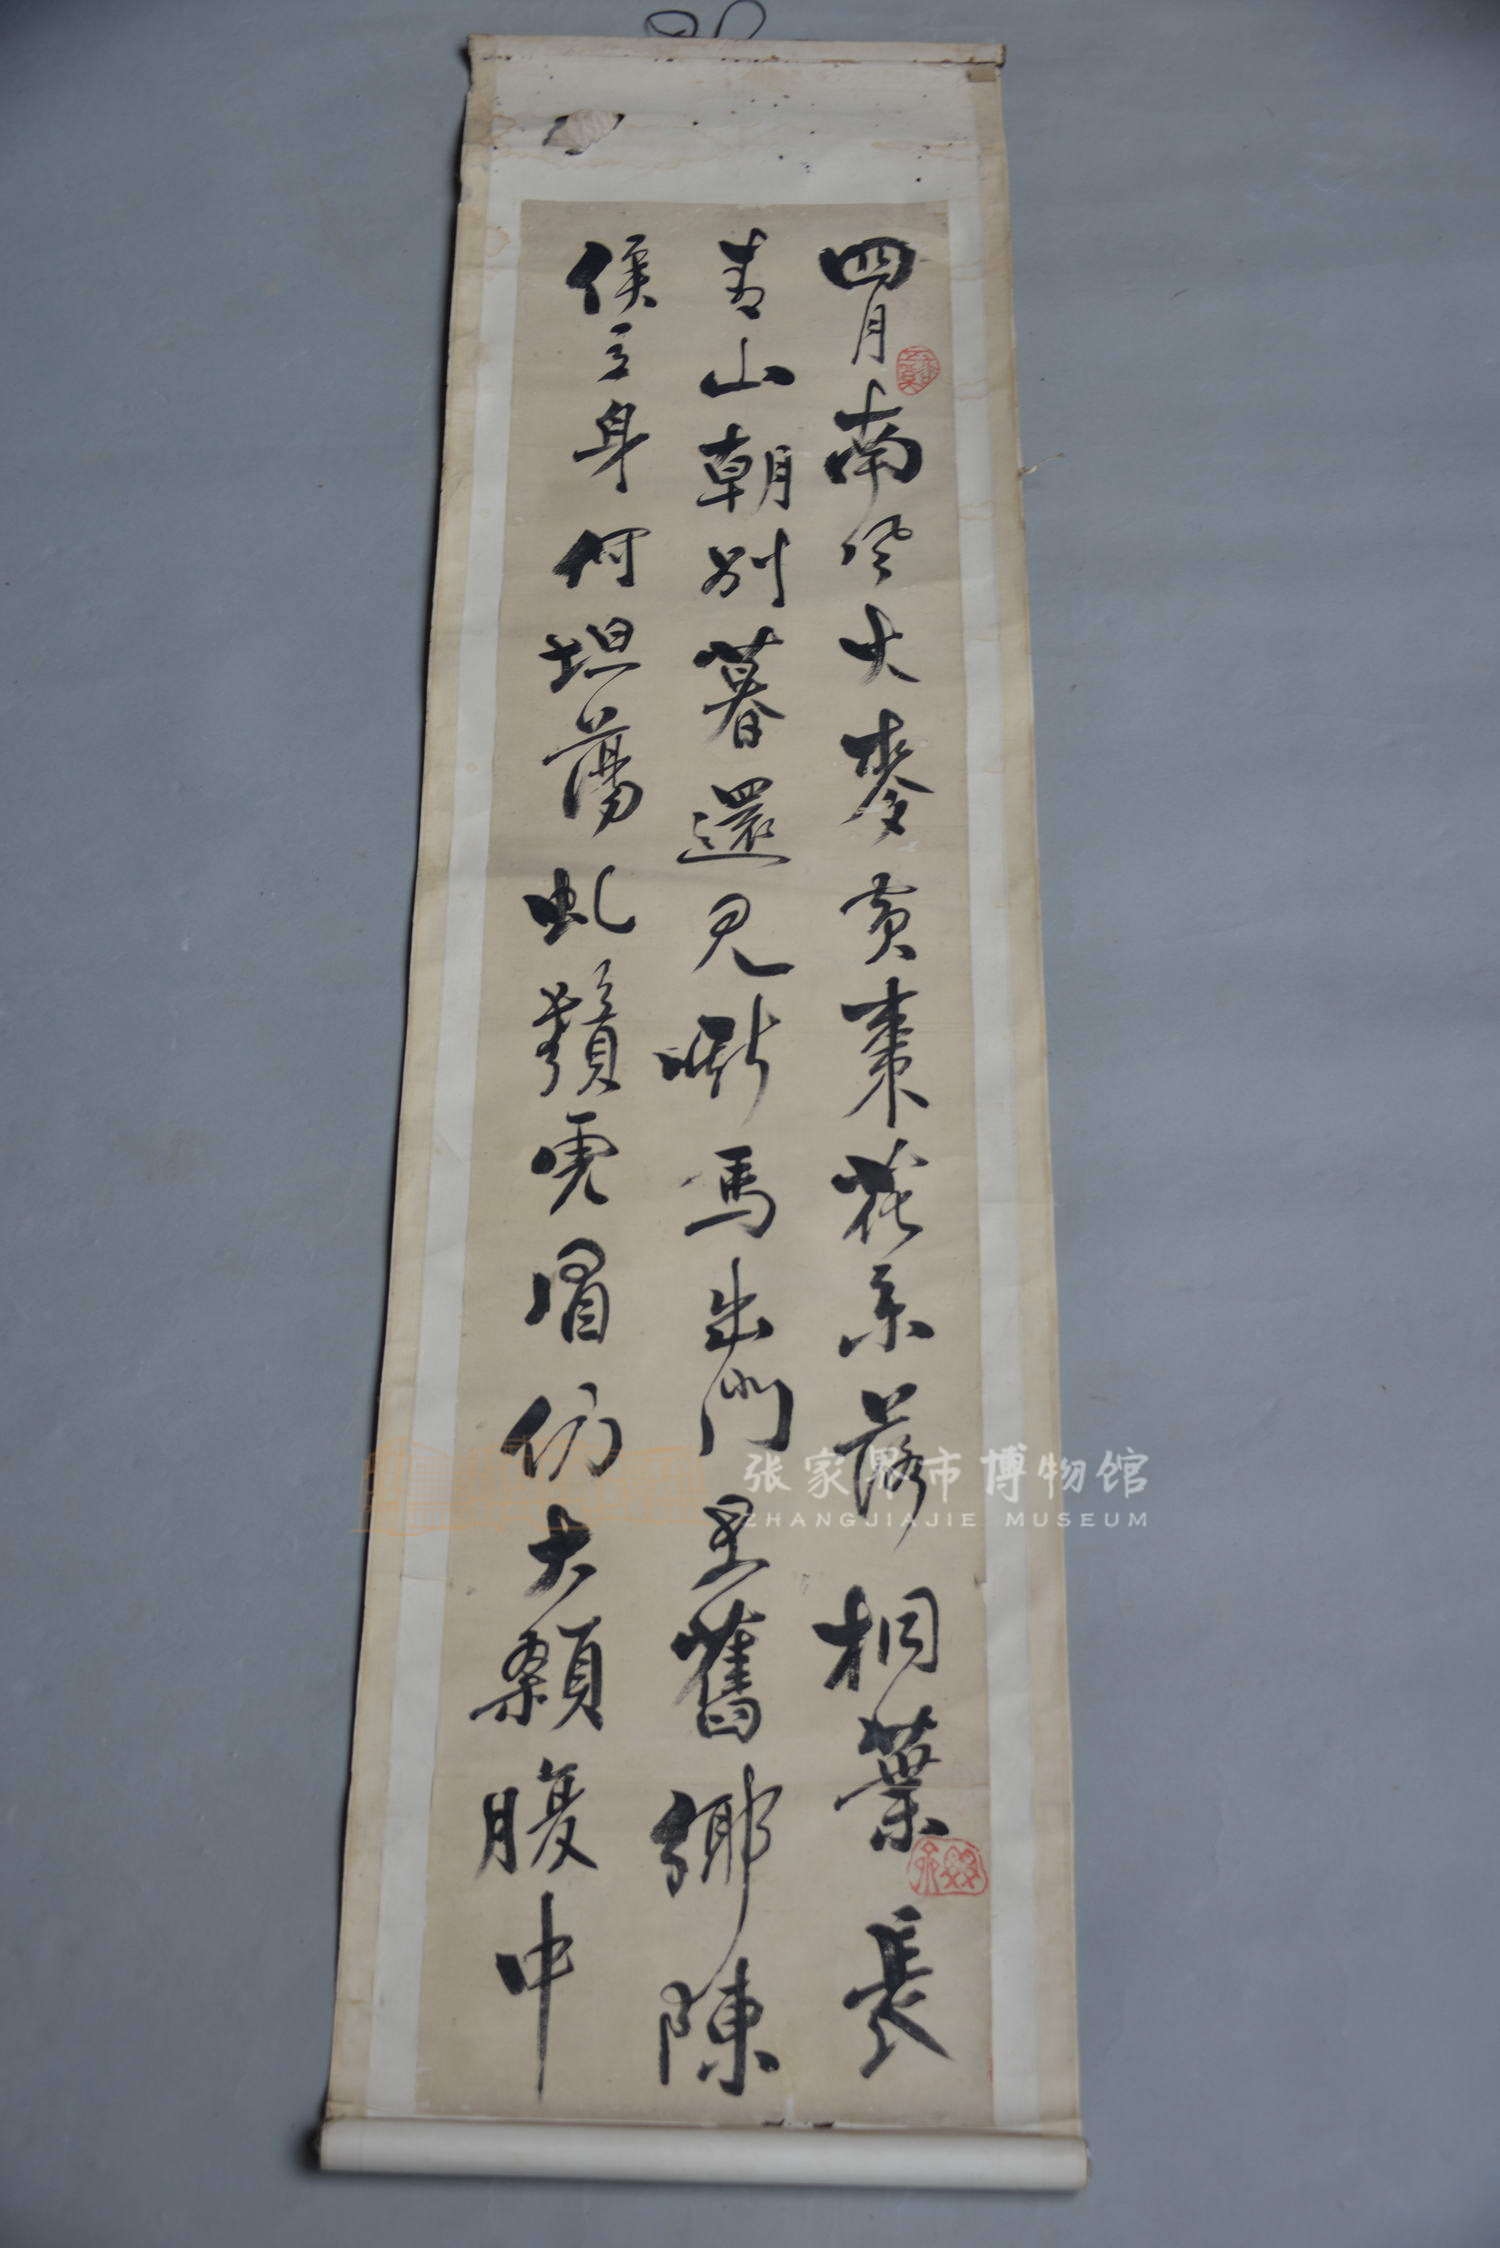 四月南风大麥黄棗花未落桐葉長
青山朝别暮還見嘶馬出門思舊鄉陳
侯立身何坦蕩虬鬚虎眉仍大顙腹中
张家界市博物馆
ZHANGJIAJIE MUSEUM